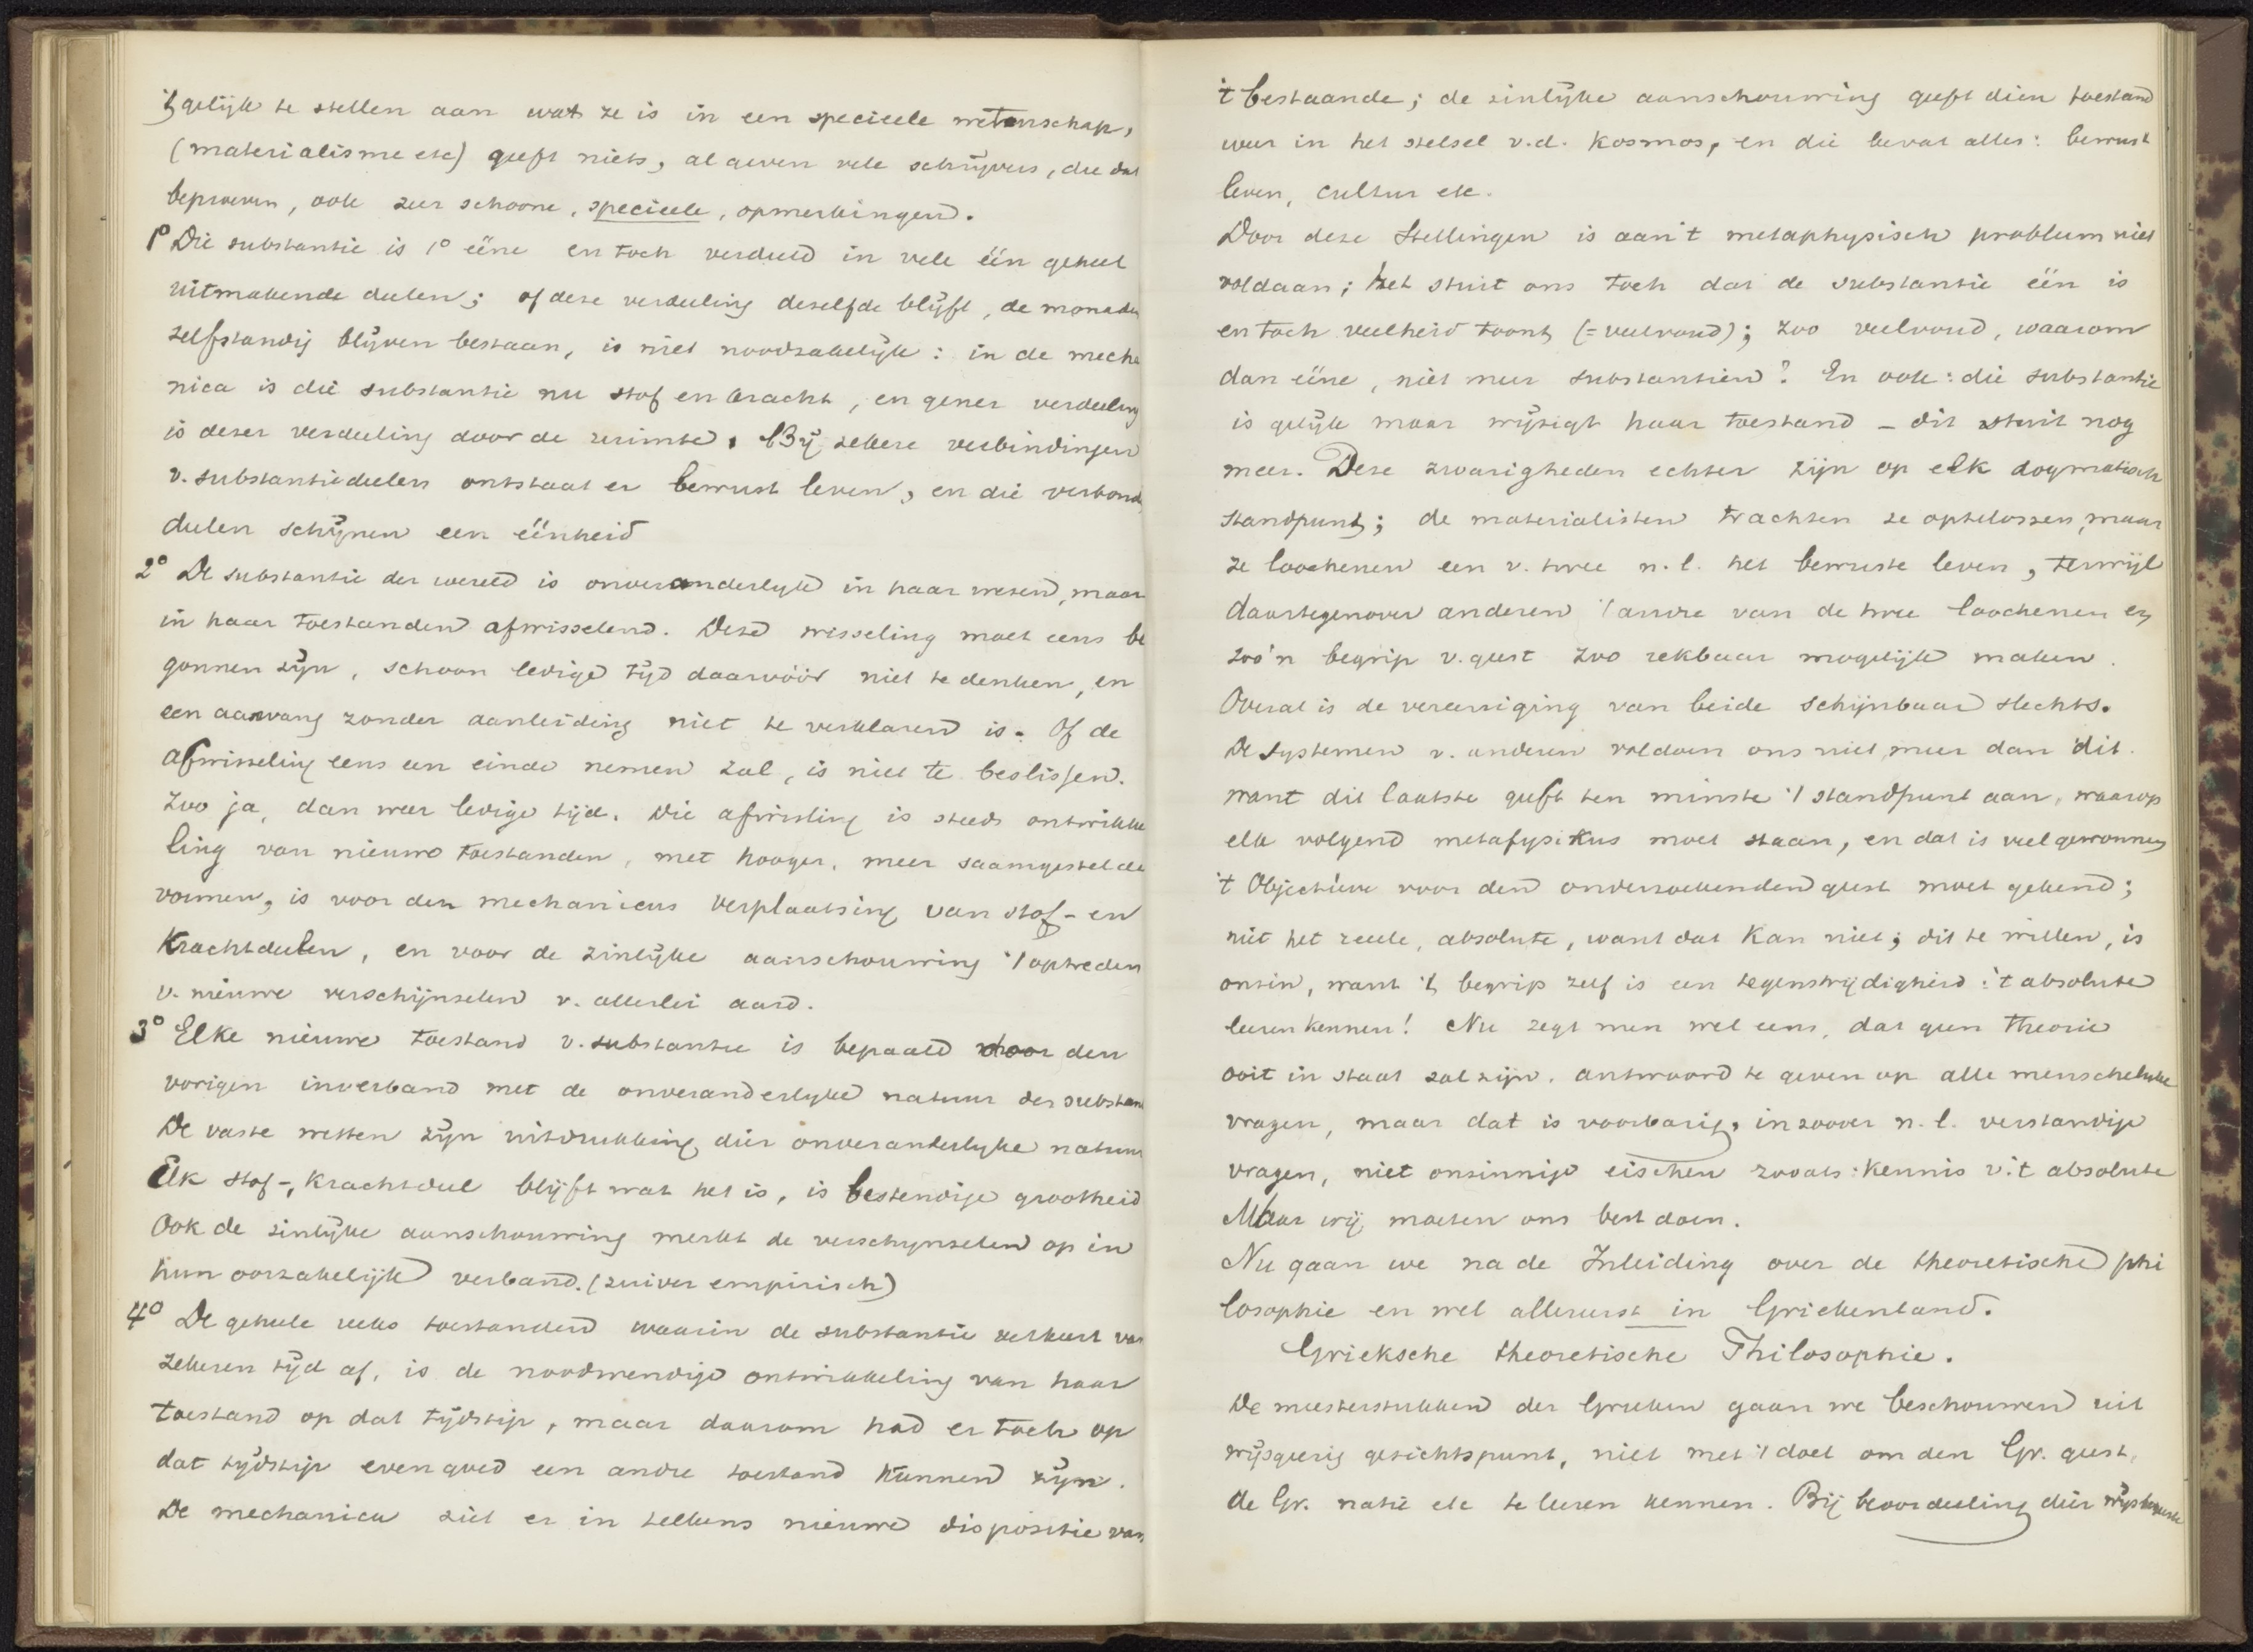 't gelijk te stellen aan wat ze is in een specieele wetenschap,
(materialisme etc) geeft niets, al geven vele schrijvers, die dat
beproeven, ook zeer schoone, specieele, opmerkingen.
1° Die substantie is 1° ééne en toch verdeeld in vele één geheel
uitmakende deelen; of deze verdeeling dezelfde blijft, de monaden
zelfstandig blijven bestaan, is niet noodzakelijk: in de mecha
nica is die substantie nu stof en kracht, en gener verdeeling
is dezer verdeeling door de ruimte. Bij zekere verbindingen
v. substantiedeelen ontstaat er bewust leven, en die verbond
deelen schijnen een éénheid
2° De substantie der wereld is onveranderlijk in haar wezen, maar
in haar toestanden afwisselend. Deze wisseling moet eens be
gonnen zijn, schoon ledige tijd daarvóór niet te denken, en
een aanvang zonder aanleiding niet te verklaren is. Of de
afwisseling eens een einde nemen zal, is niet te beslissen.
Zoo ja, dan weer ledige tijd. Die afwissling is steeds ontwikke
ling van nieuwe toestanden, met hooger, meer saamgestelde
vormen, is voor den mechanicus verplaatsing van stof- en
Krachtdeelen, en voor de zinlijke aanschouwing 't optreden
v. nieuwe verschijnselen v. allerlei aard.
3° Elke nieuwe toestand v. substantie is bepaald door den
vorigen in verband met de onveranderlijke natuur der substan
De vaste wetten zijn uitdrukking dier onveranderlijke natuur
Elk stof-, Krachtdeel blijft wat het is, is bestendige grootheid
Ook de zinlijke aanschouwing merkt de verschijnselen op in
hun oorzakelijk verband. (zuiver empirisch)
4° De geheele reeks toestanden waarin de substantie verkeert van
zekeren tijd af, is de noodwendige ontwikkeling van haar
toestand op dat tijdstip, maar daarom had er toch op
dat tijdstip even goed een andre toestand kunnen zijn.
De mechanica ziet er in telkens nieuwe dispositie van
't bestaande; de zinlijke aanschouwing geeft dien toestand
weer in het stelsel v.d. Kosmos, en die bevat alles: bewust
leven, cultuur etc.
Door deze stellingen is aan 't metaphysisch probleem niet
voldaan; het stuit ons toch dat de substantie één is
en toch veelheid toont (= veelvoud); zoo veelvoud, waarom
dan ééne, niet meer substantien? En ook: die substantie
is gelijk maar wijzigt haar toestand – dit stuit nog
meer. Deze zwarigheden echter zijn op elk dogmatisch
standpunt; de materialisten trachten ze op te lossen, maar
ze loochenen een v. twee n.l. het bewuste leven, terwijl
daartegenover anderen 't andre van de twee loochenen en
zoo'n begrip v. geest zoo rekbaar mogelijk maken.
Overal is de vereeniging van beide schijnbaar slechts.
De systemen v. anderen voldoen ons niet meer dan dit.
want dit laatste geeft ten minste 't standpunt aan, waarop
elk volgend metafysikus moet staan, en dat is veel gewonnen
't Objectieve voor den onderzoekenden geest moet gekend;
niet het reeele, absolute, want dat kan niet; dit te willen, is
onzin, want 't begrip zelf is een tegenstrijdigheid: 't absolute
leeren kennen! Nu zegt men wel eens, dat geen theorie
ooit in staat zal zijn, antwoord te geven op alle menschelijke
vragen, maar dat is voorbarig, in zoover n.l. verstandige
vragen, niet onzinnige eischen zooals: kennis v. 't absolute
Maar wij moeten ons best doen.
Nu gaan we na de Inleiding over de theoretische phi
losophie en wel allereerst in Griekenland.
Grieksche theoretische Philosophie.
De meesterstukken der Grieken gaan we beschouwen uit
wijsgeerig gezichtspunt, niet met 't doel om den Gr. geest,
de Gr. natie etc te leeren kennen. Bij beoordeeling dier